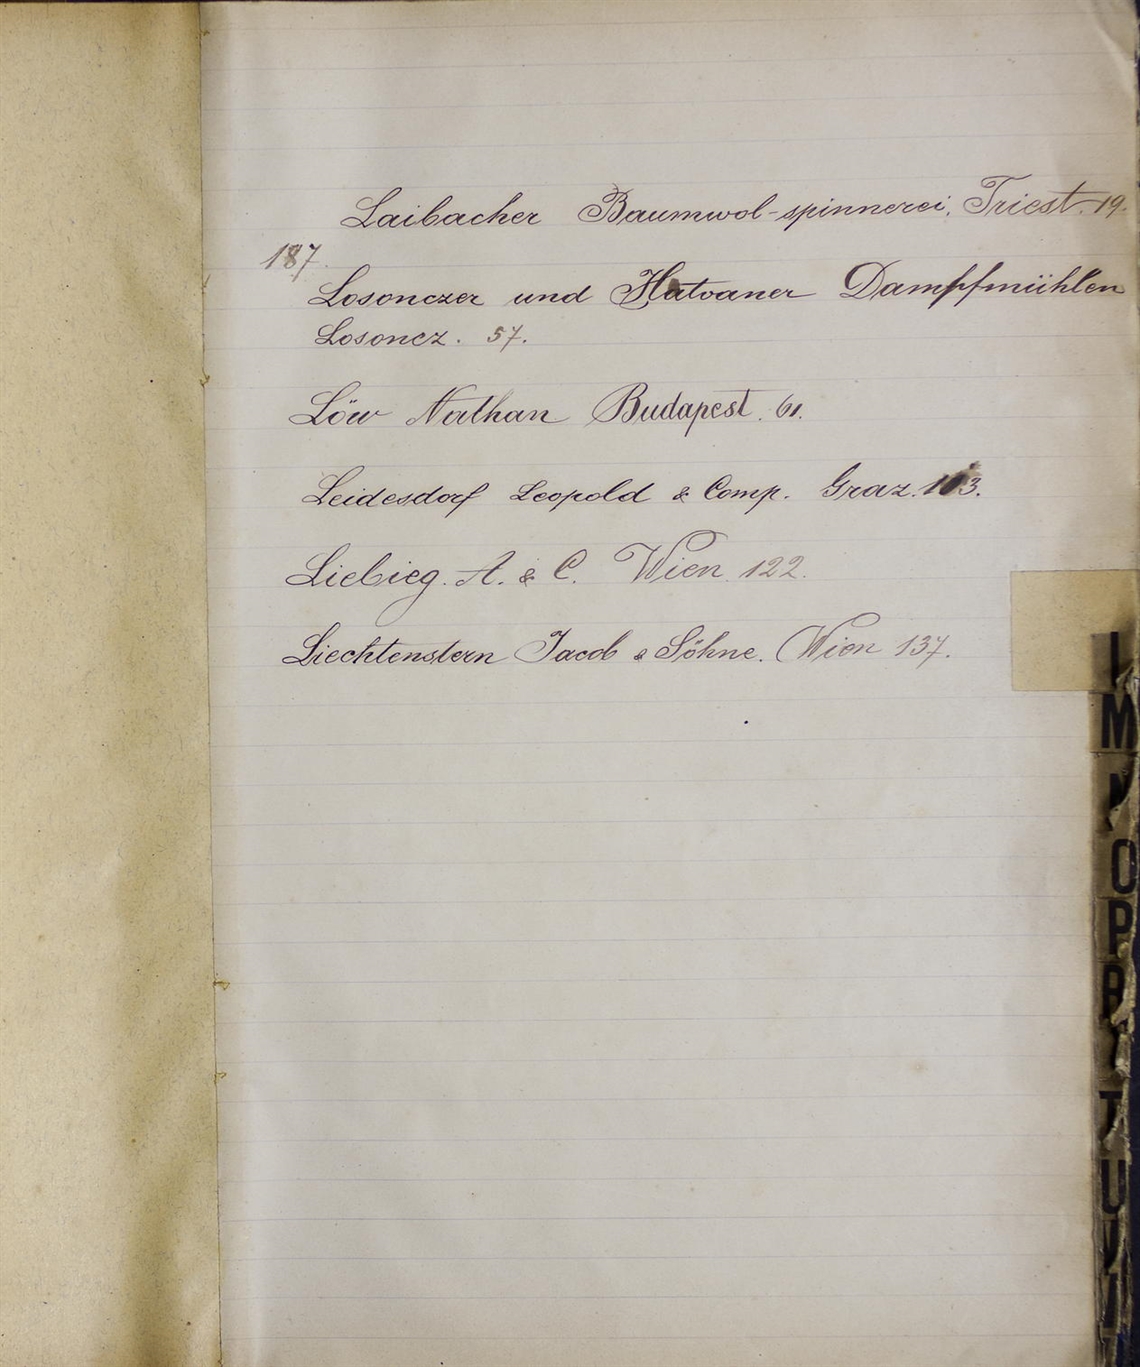 Laibacher Baumwol-spinnerei, Triest. 19.
187.
Losonczer und Hatvaner Dampfmühlen
Losoncz. 57.
Löw Nathan Budapest. 61.
Leidesdorf Leopold & Comp. Graz. 103.
Liebieg. A. & C. Wien 122.
Liechtenstern Jacob & Söhne. Wien 137.
L
M
N
O
P
R
T
U